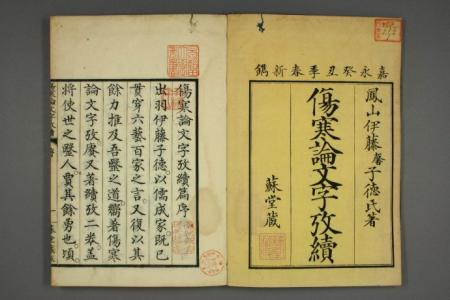 嘉永癸丑季春新鐫
鳳山伊藤馨子德氏著
傷寒論文字攷續
蘇堂藏
傷寒論文字攷續篇序
出羽伊藤子德以儒成家既已
貫穿六藝百家之言又復以其
餘力推及吾醫之道嚮著傷寒
論文字攷賡又著續攷二卷蓋
將使世之醫人賈其餘勇也頃